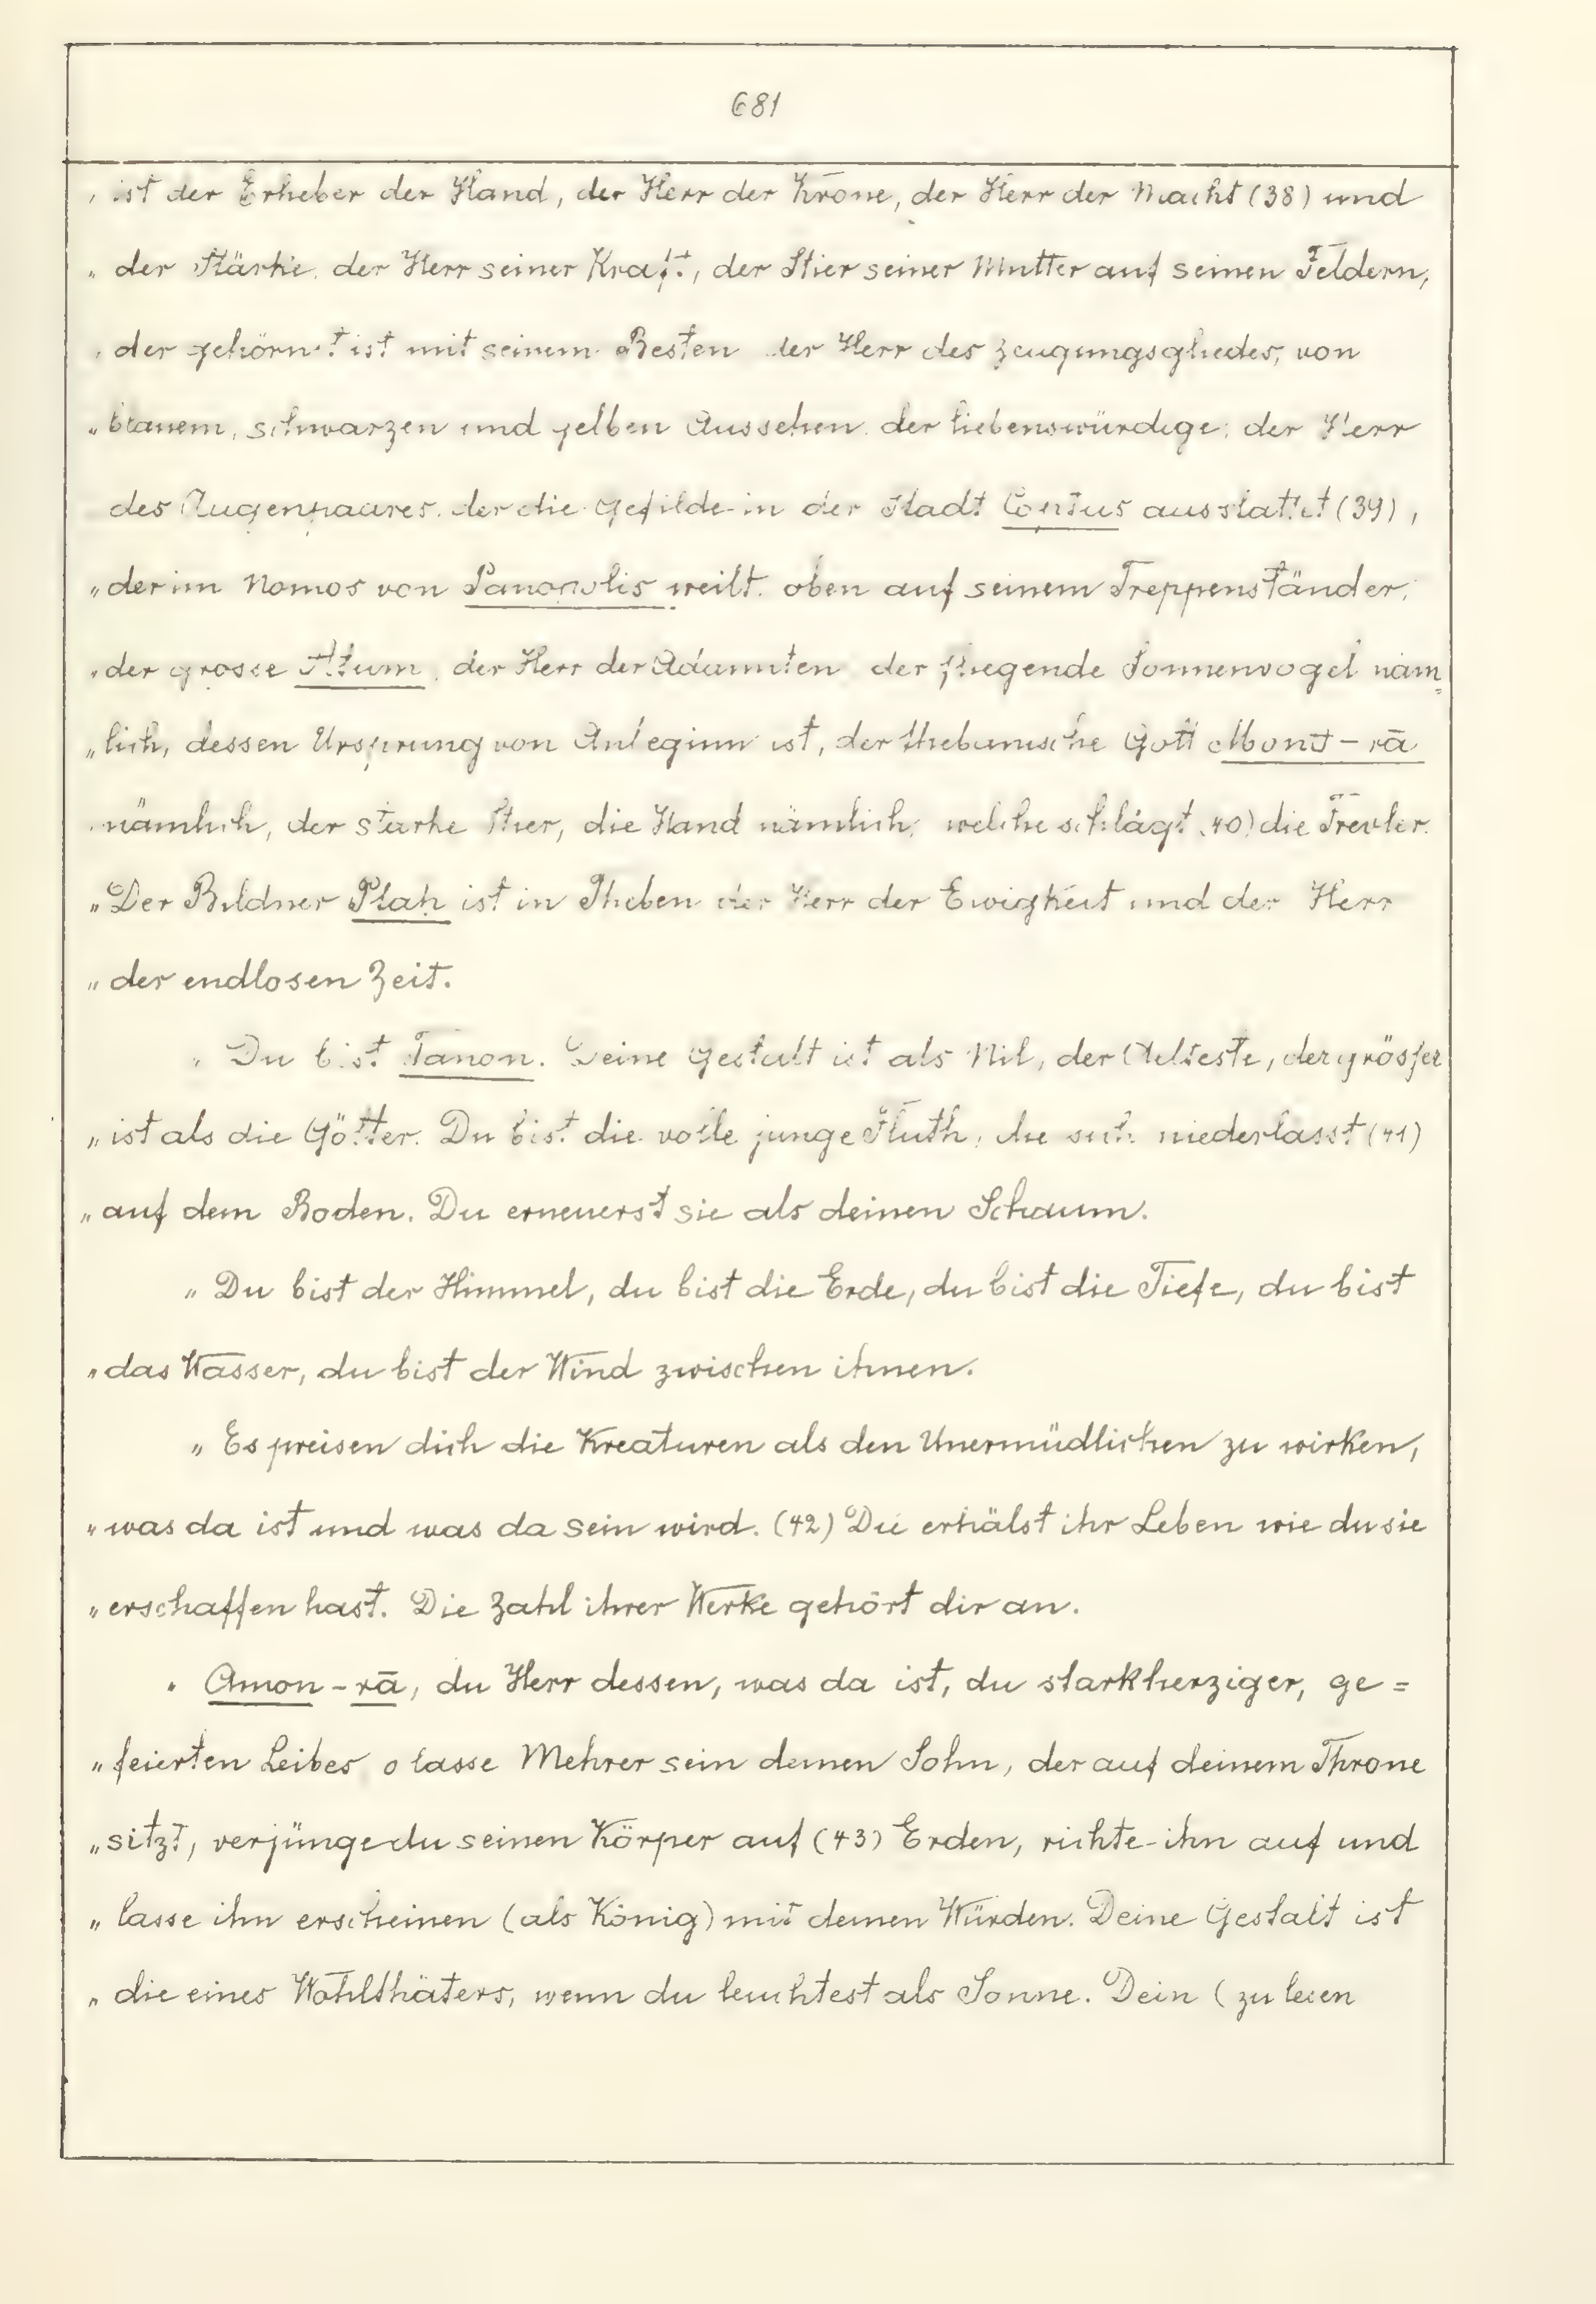 681
„ ist der Erheber der Hand, der Herr der Krone, der Herr der Macht (38) und
„ der Stärke, der Herr seiner Kraft, der Stier seiner Mutter auf seinen Feldern,
„ der gehörnt ist mit seinem Besten der Herr des Zeugungsgliedes, von
„ blauem, schwarzen und gelben Aussehen, der liebenswürdige, der Herr
des Augenpaares, der die Gefilde in der Stadt Coptus ausstattet (39),
„ der im Nomos von Panopolis weilt, oben auf seinem Treppenständer,
„ der grosse Atum, der Herr der der fliegende Sonnenvogel näm=
„ lich, dessen Ursprung von Anbeginn ist, der thebanische Gott Mont-rā
„ nämlich, der starke Stier, die Hand nämlich, welche schlägt (40) die Frevler.
„ Der Bildner Ptah ist in Theben der Herr der Ewigkeit und der Herr
„ der endlosen Zeit.
„ Du bist Tanon. Deine Gestalt ist als Nil, der Aelteste, der grösser
„ ist als die Götter. Du bist die volle junge Fluth, die sich niederlasst (41)
„ auf dem Boden. Du erneuerst sie als deinen Schaum.
„ Du bist der Himmel, du bist die Erde, du bist die Tiefe, du bist
„ das Wasser, du bist der Wind zwischen ihnen.
„ Es preisen dich die Kreaturen als den Unermüdlichen zu wirken,
„ was da ist und was da sein wird. (42) Du erhälst ihr Leben wie du sie
„ erschaffen hast. Die Zahl ihrer Werke gehört dir an.
„ Amon-rā, du Herr dessen, was da ist, du starkherziger, ge=
„ feierten Leibes, o lasse Mehrer sein deinen Sohn, der auf deinem Throne
„ sitzt, verjünge du seinen Körper auf (43) Erden, richte ihn auf und
„ lasse ihn erscheinen (als König) mit deinen Würden. Deine Gestalt ist
„ die eines Wohlthäters, wenn du leuchtest als Sonne. Dein (zu lesen